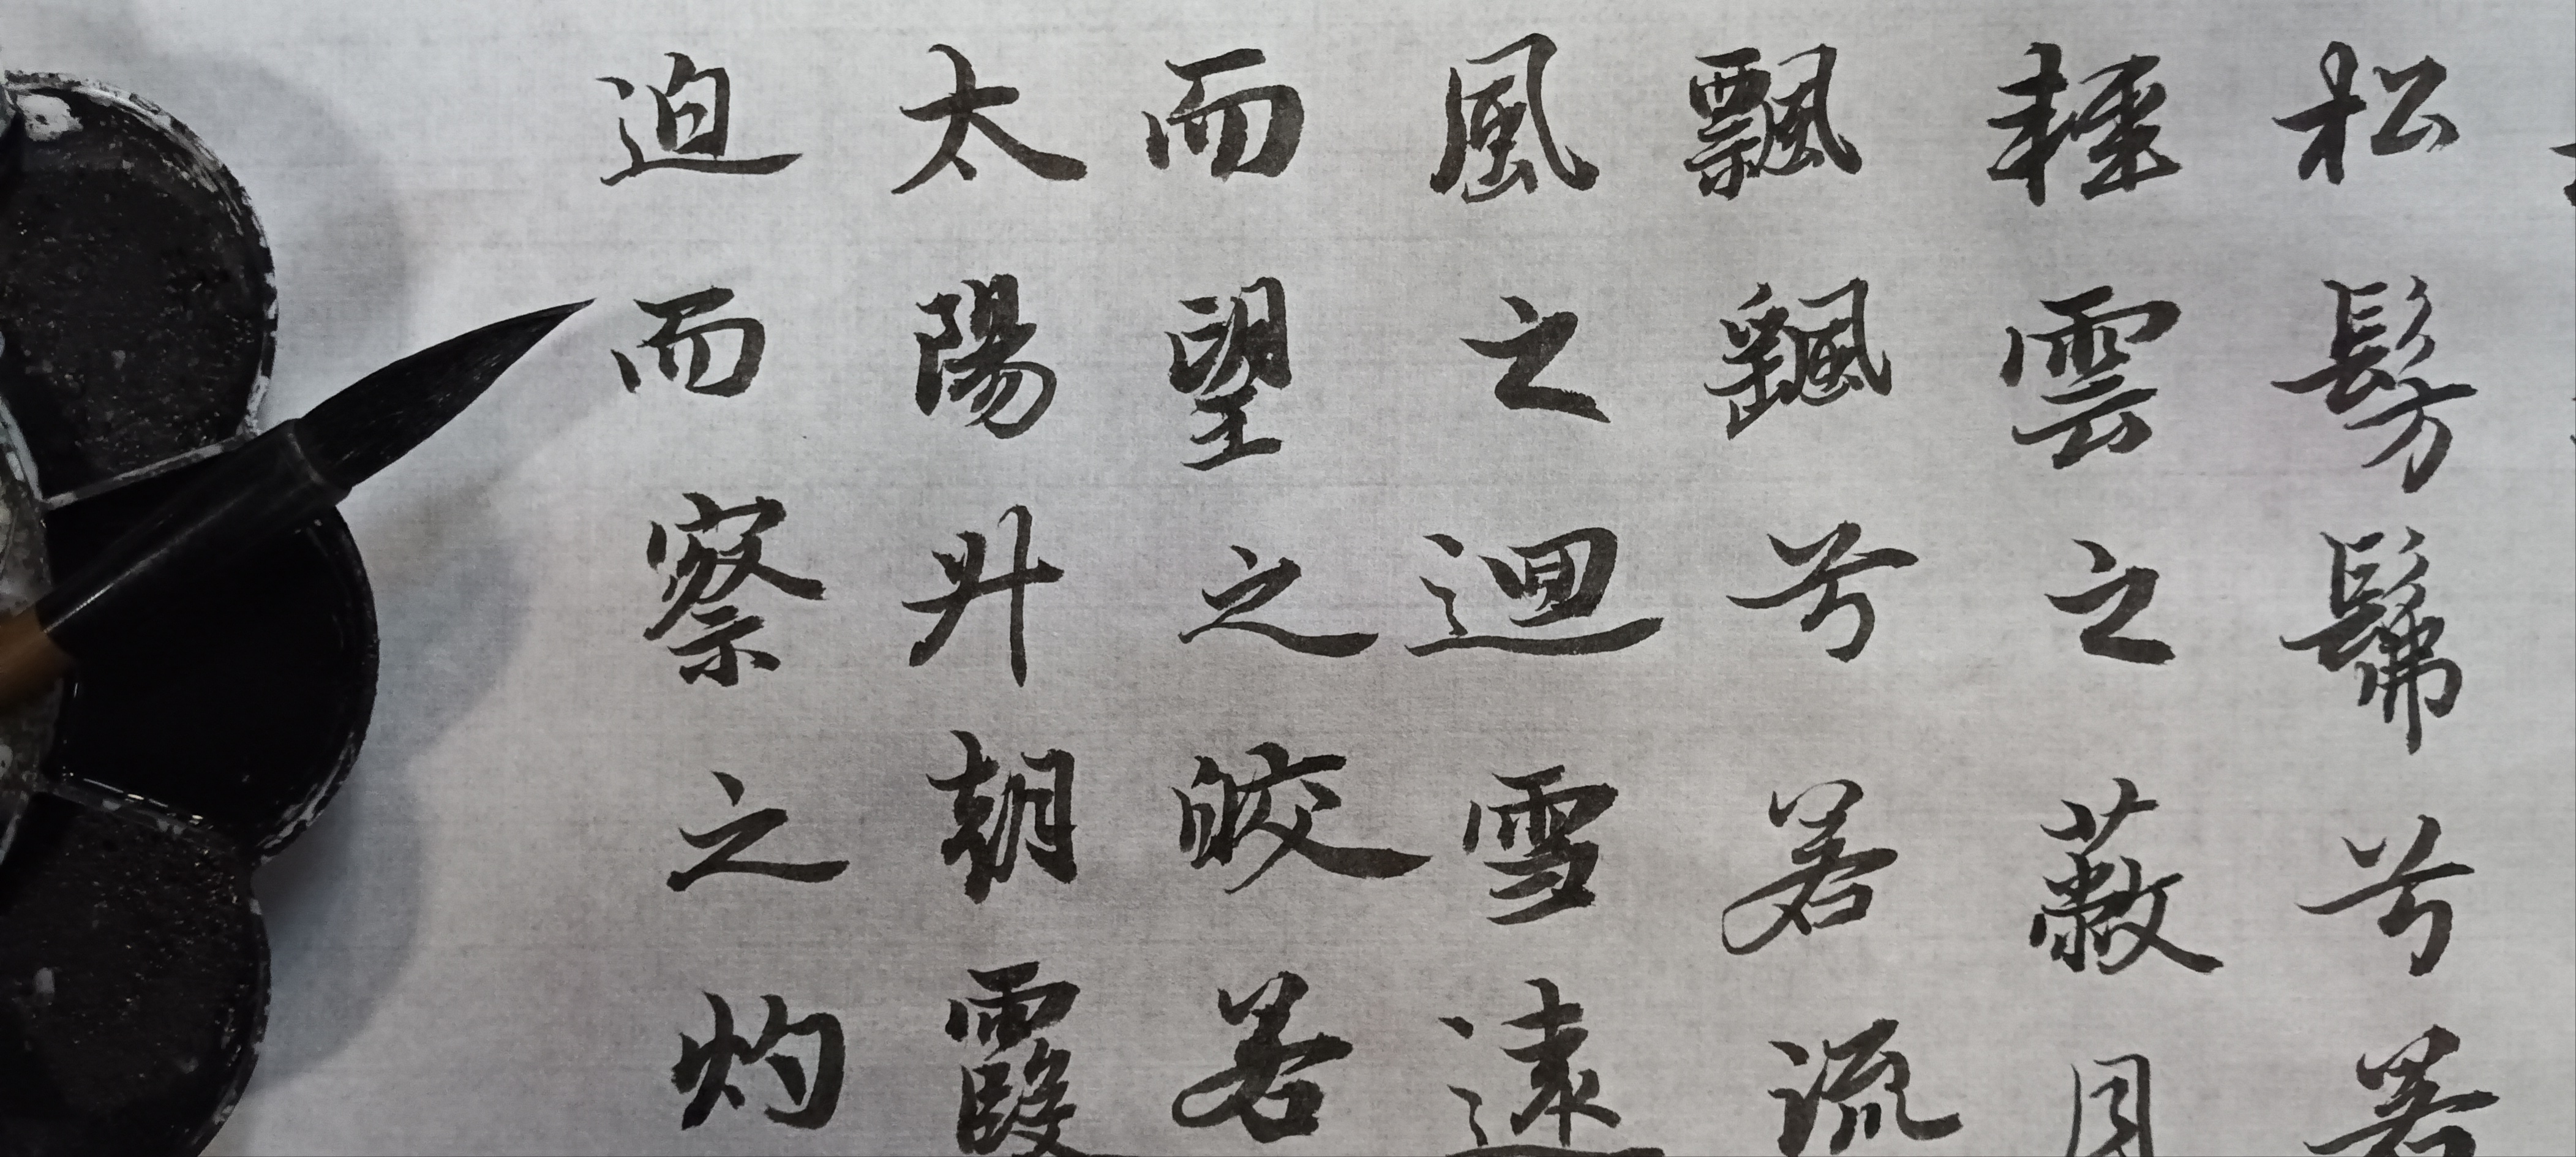 松髣髴兮若
輕雲之蔽月
飄飖兮若流
風之迴雪遠
而望之皎若
太陽升朝霞
迫而察之灼